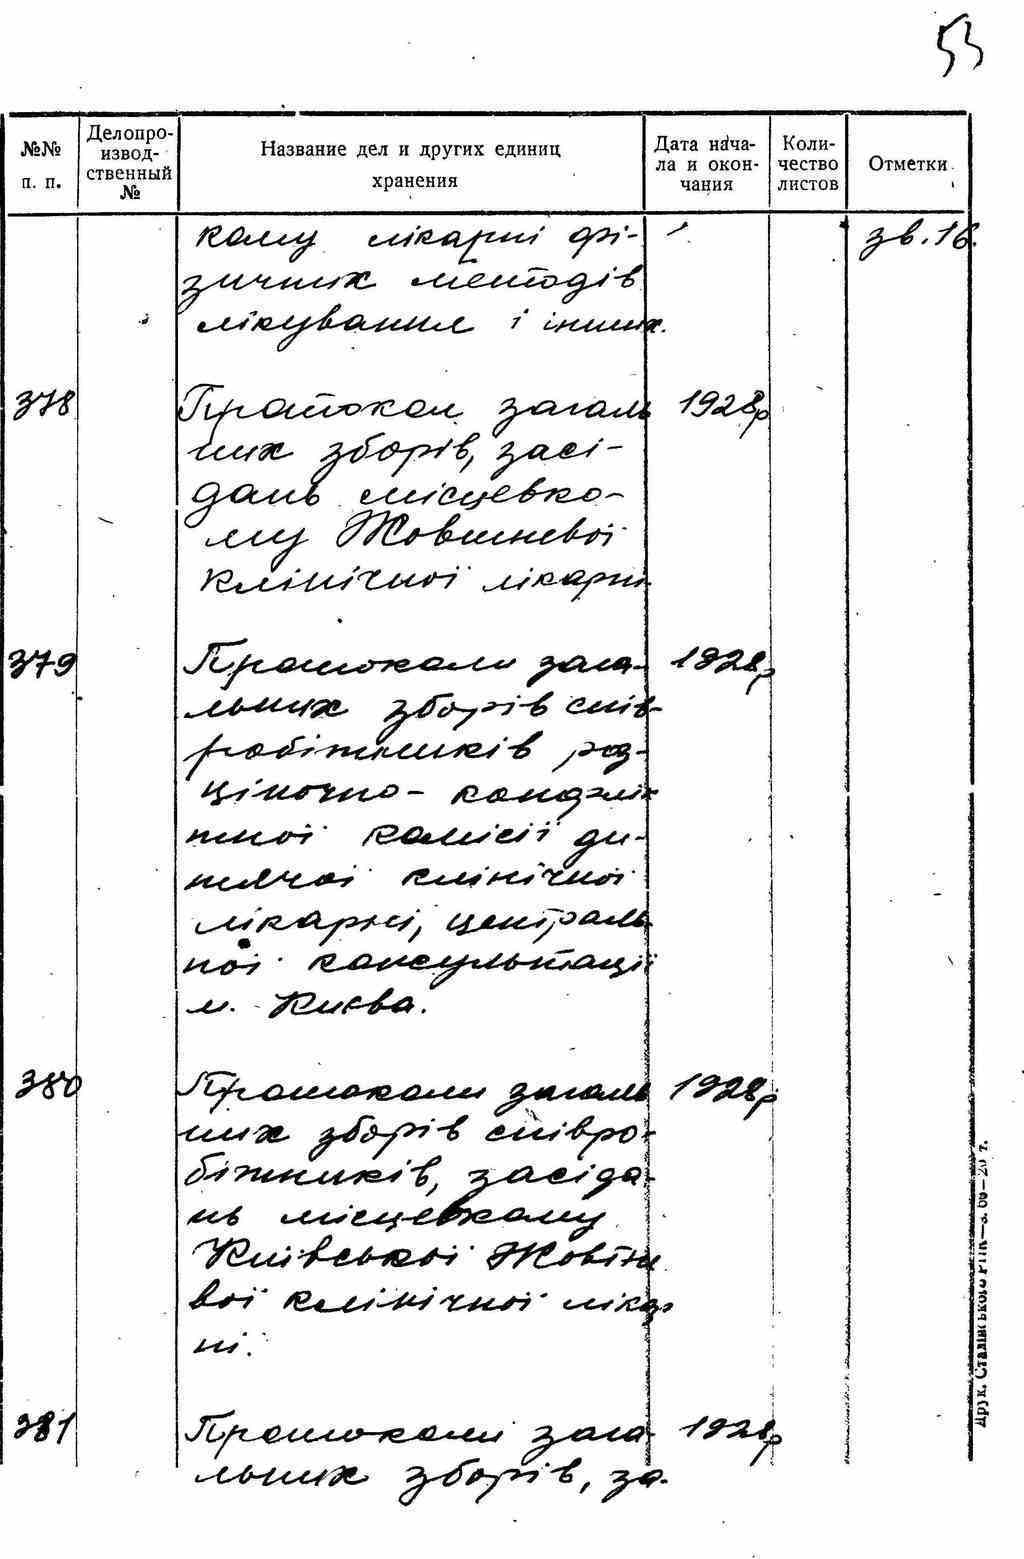 53
№№ п. п.
Делопро-
извод-
ственный
№
Название дел и других единиц
хранения
Дата нача-
ла и окон-
чания
Коли-
чество
листов
Отметки
кому лікарні фі-
зв. 16.
зичних методів
лікування і інших.
378 Протокол загаль 1928р
них зборів, засі-
дань місцевко-
му Жовтневої
клінічної лікарні
379 Протоколи зага- 1928р
льних зборів спів-
робітників роз-
ціночно-конфлік
тної комісії ди-
тячої клінічної
лікарні, централь
ної консультації
м. Києва.
380 Протоколи загаль 1928р
них зборів співро-
бітників, засіда-
нь місцевкому
Київської Жовтне
вої клінічної лікар
ні.
381 Протоколи зага- 1928р
льних зборів, за-
Друк. Сталінського РПК—З. 66—20 т.